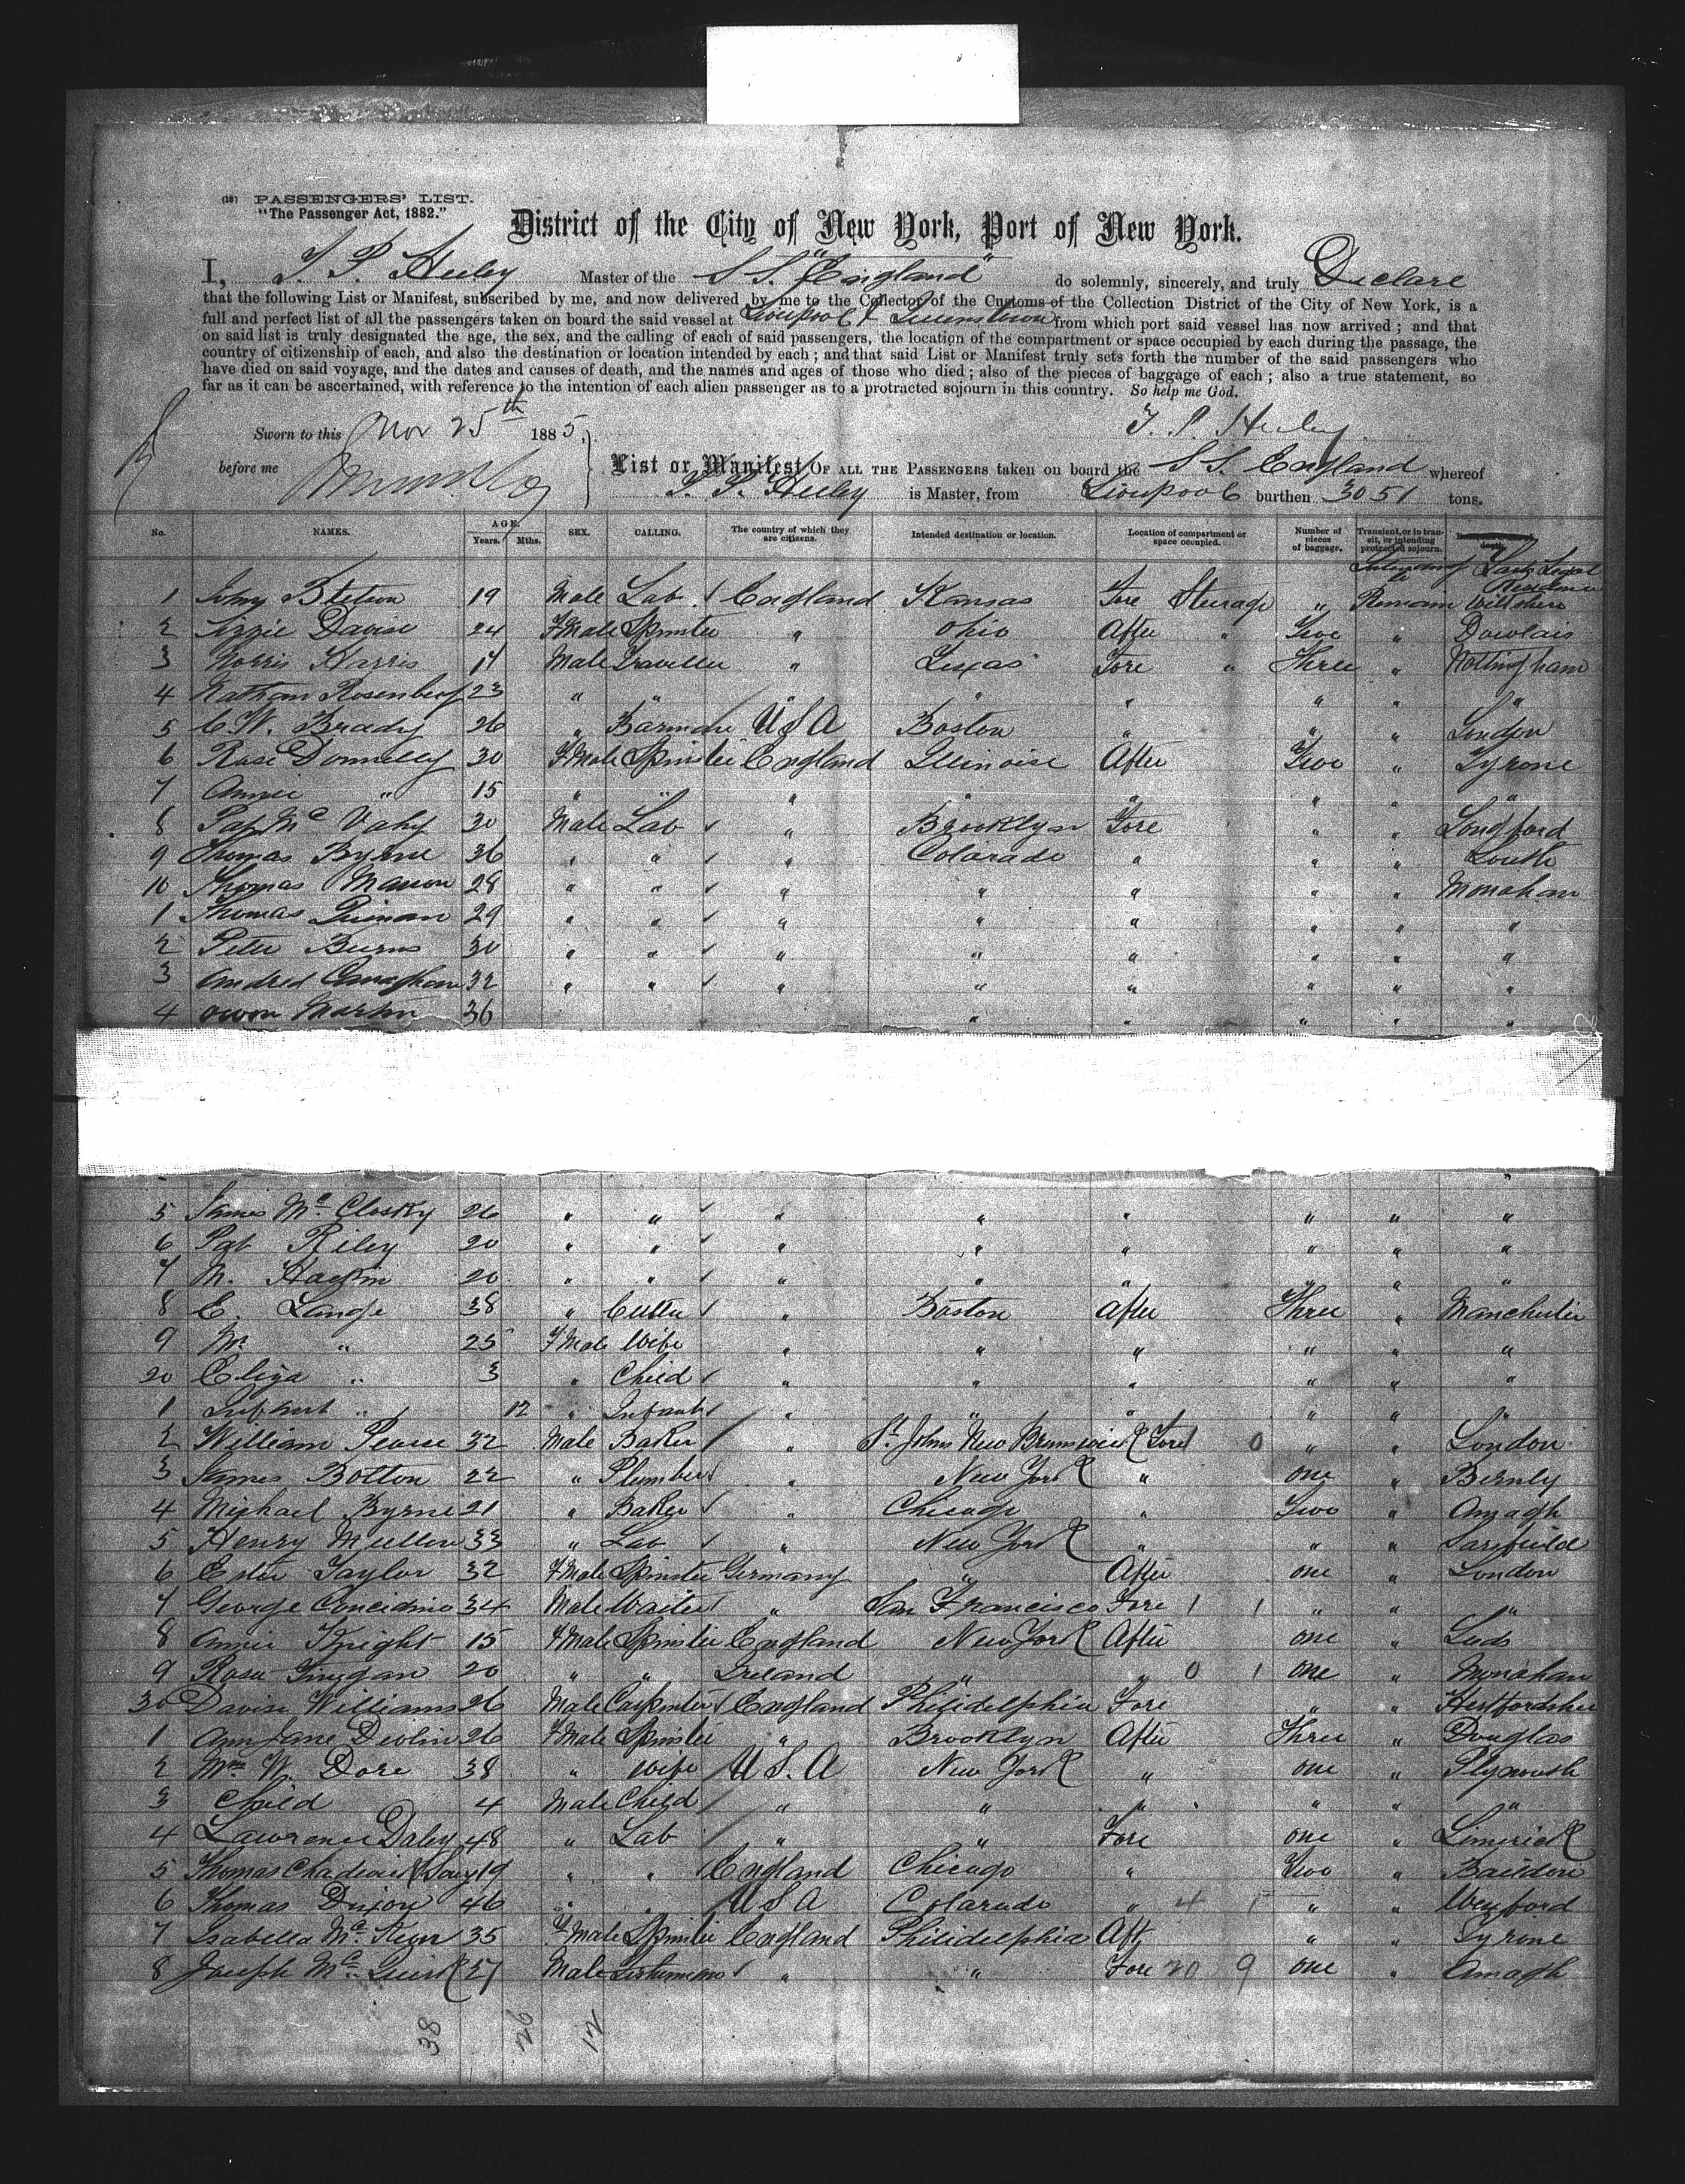 (18) PASSENGERS' LIST.
"The Passenger Act, 1882."
District of the City of New York, Port of New York.
I, T. P. Heeley Master of the S S. "England" do solemnly, sincerely, and truly Declare
that the following List or Manifest, subscribed by me, and now delivered by me to the Collector of the Customs of the Collection District of the City of New York, is a
full and perfect list of all the passengers taken on board the said vessel at Liverpool & Queenstown from which port said vessel has now arrived; and that
on said list is truly designated the age, the sex, and the calling of each of said passengers, the location of the compartment or space occupied by each during the passage, the
country of citizenship of each, and also the destination or location intended by each; and that said List or Manifest truly sets forth the number of the said passengers who
have died on said voyage, and the dates and causes of death, and the names and ages of those who died; also of the pieces of baggage of each; also a true statement, so
far as it can be ascertained, with reference to the intention of each alien passenger as to a protracted sojourn in this country. So help me God.
Sworn to this Nov 25th 1885. T. P. Heeley
before me List or Manifest OF ALL THE PASSENGERS taken on board the S S. England whereof
T. P. Heeley is Master, from Liverpool burthen 3051 tons.
No. NAMES. AGE. Years. Mths. SEX. CALLING. The country of which they are citizens. Intended destination or location. Location of compartment or space occupied. Number of pieces of baggage. Transient, or in transit, or intending protracted sojourn. Last Legal Residence
1 John Stetson 19 Male Lab England Kansas Fore Steerage " Remain Wiltshire
2 Lizzie Davise 24 FMale Spinster " Ohio After " Two " Dowlais
3 Morris Harris 17 Male Traveller " Texas Fore " Three " Nottingham
4 Nathan Rosenberg 23 " " " " " " " "
5 C. W. Brady 26 " Barman U S A Boston " " " London
6 Rose Donnelly 30 FMale Spinster England Illinoise After Two " Tyrone
7 Annie " 15 " " " " " " " "
8 Pat Mc Vahy 30 Male Lab " Brooklyn Fore " " Longford
9 Thomas Byrne 36 " " " Colorado " " " Louth
10 Thomas Marron 28 " " " " " " " Monahan
1 Thomas 29 " " " " " " " "
2 Peter Burns 30 " " " " " " " "
3 Andred 32 " " " " " " " "
4 Owen Martin 36 " " " " "
5 James Mc Closky 26 " " " " " " " "
6 Pat Riley 20 " " " " " " " "
7 M. 20 " " " " " " " "
8 E. Lange 38 " Cutter " Boston After Three " Manchester
9 Mrs " 25 FMale Wife " " " " " "
20 Eliza " 3 " Child " " " " " "
1 Infant " 12 " Infant " " " " " "
2 William Pearce 32 Male Baker " St. Johns New Brunswick Fore 0 " " London
3 James Botton 22 " Plumber " New York " one " Birnly
4 Michael Byrne 21 " Baker " Chicago " Two " Amagh
5 Henry Mullen 33 " Lab " New York " " "
6 Ester Taylor 32 FMale Spinster Germany " After one " London
7 George 34 Male Waiter " San Francisco Fore 1 1 " " "
8 Annie Knight 15 FMale Spinster England New York After one " Leeds
9 Rose Finegan 20 " " Ireland " " 0 1 one " Monahan
30 Davise Williams 26 Male Carpenter England Philidelphia Fore " " Hertfordshire
1 Ann Jane Devlin 26 FMale Spinster " Brooklyn After Three " Douglas
2 Mrs W. Dore 38 " Wife U S. A New York " one " Plymouth
3 Child 4 Male Child " " " " " "
4 Lawrence Daley 48 " Lab " " Fore one " Limerick
5 Thomas Chadwick 19 " " England Chicago " Two " Baildon
6 Thomas Dixon 46 " " U S A Colarado " 4 1 " " Wexford
7 Isabella Mc Keon 35 FMale Spinster England Philidelphia Aft " " Tyrone
8 Joseph Mc Quirk 27 Male " " Fore 20 9 one " Amagh
38 26 12